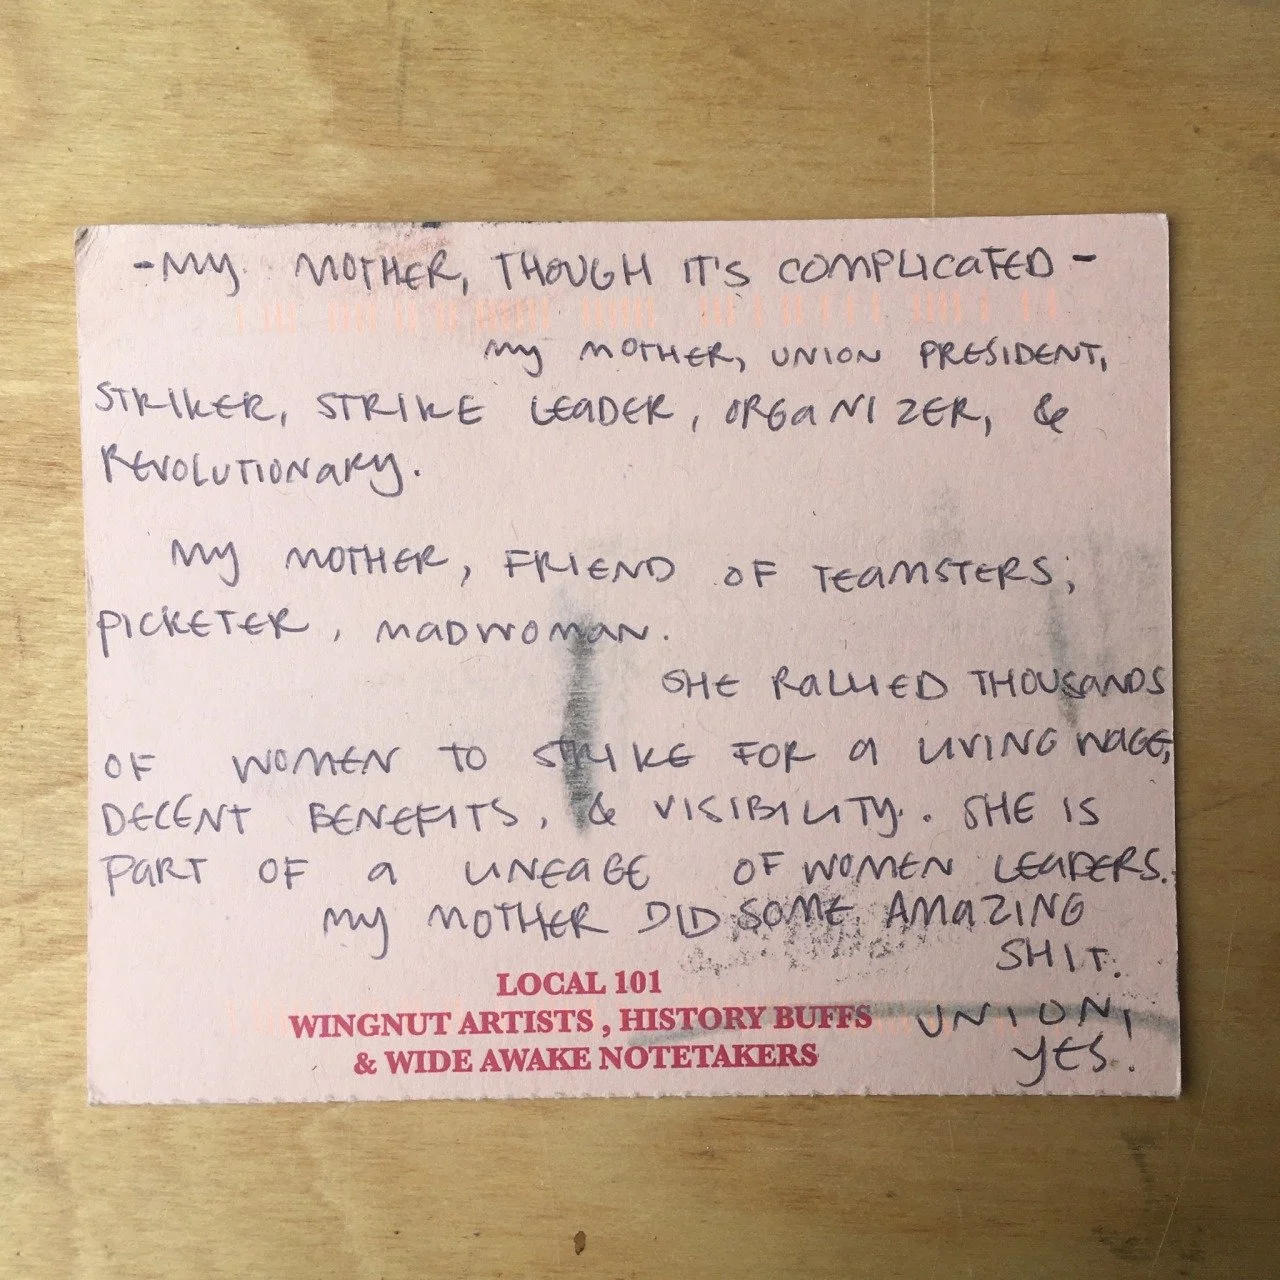 - MY MOTHER, THOUGH IT'S COMPLICATED -
MY MOTHER, UNION PRESIDENT,
STRIKER, STRIKE LEADER, ORGANIZER, &
REVOLUTIONARY.
MY MOTHER, FRIEND OF TEAMSTERS,
PICKETER, MADWOMAN.
SHE RALLIED THOUSANDS
OF WOMEN TO STRIKE FOR A LIVING WAGE,
DECENT BENEFITS, & VISIBILITY. SHE IS
PART OF A LINEAGE OF WOMEN LEADERS.
MY MOTHER DID SOME AMAZING
SHIT.
UNION,
YES!
LOCAL 101
WINGNUT ARTISTS , HISTORY BUFFS
& WIDE AWAKE NOTETAKERS